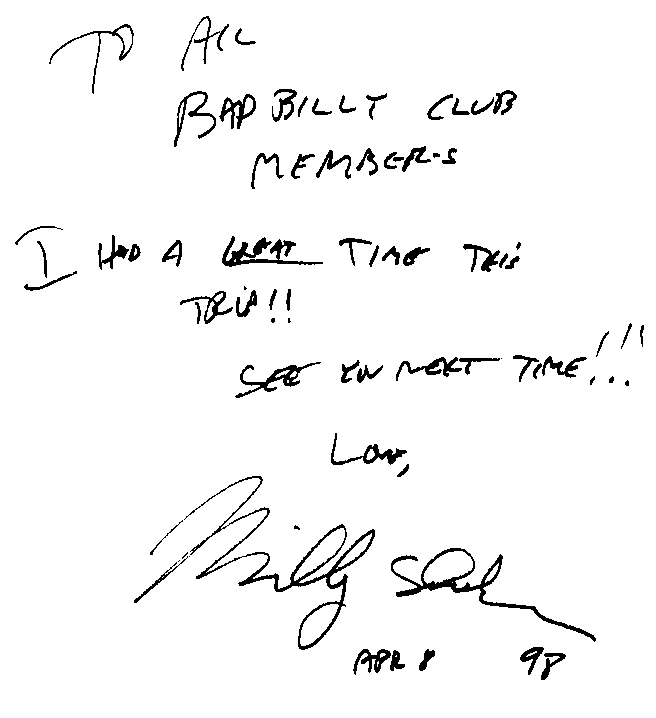 TO ALL
BAD BILLY CLUB
MEMBERS
I HAD A GREAT TIME THIS
TRIP!!
SEE YOU NEXT TIME!!!
LOVE,
Billy
APR 8 98